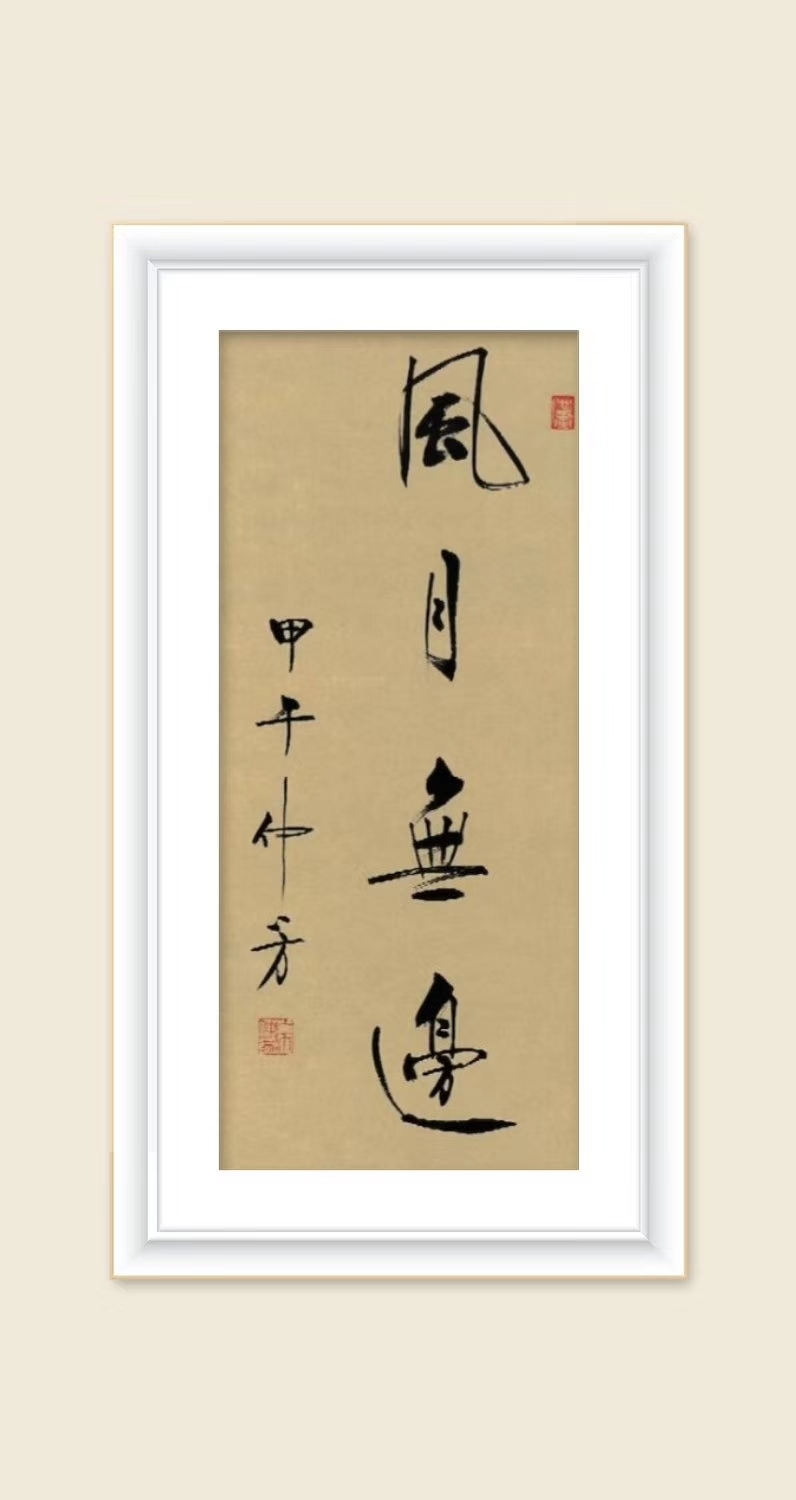 風月無邊
甲午仲芳